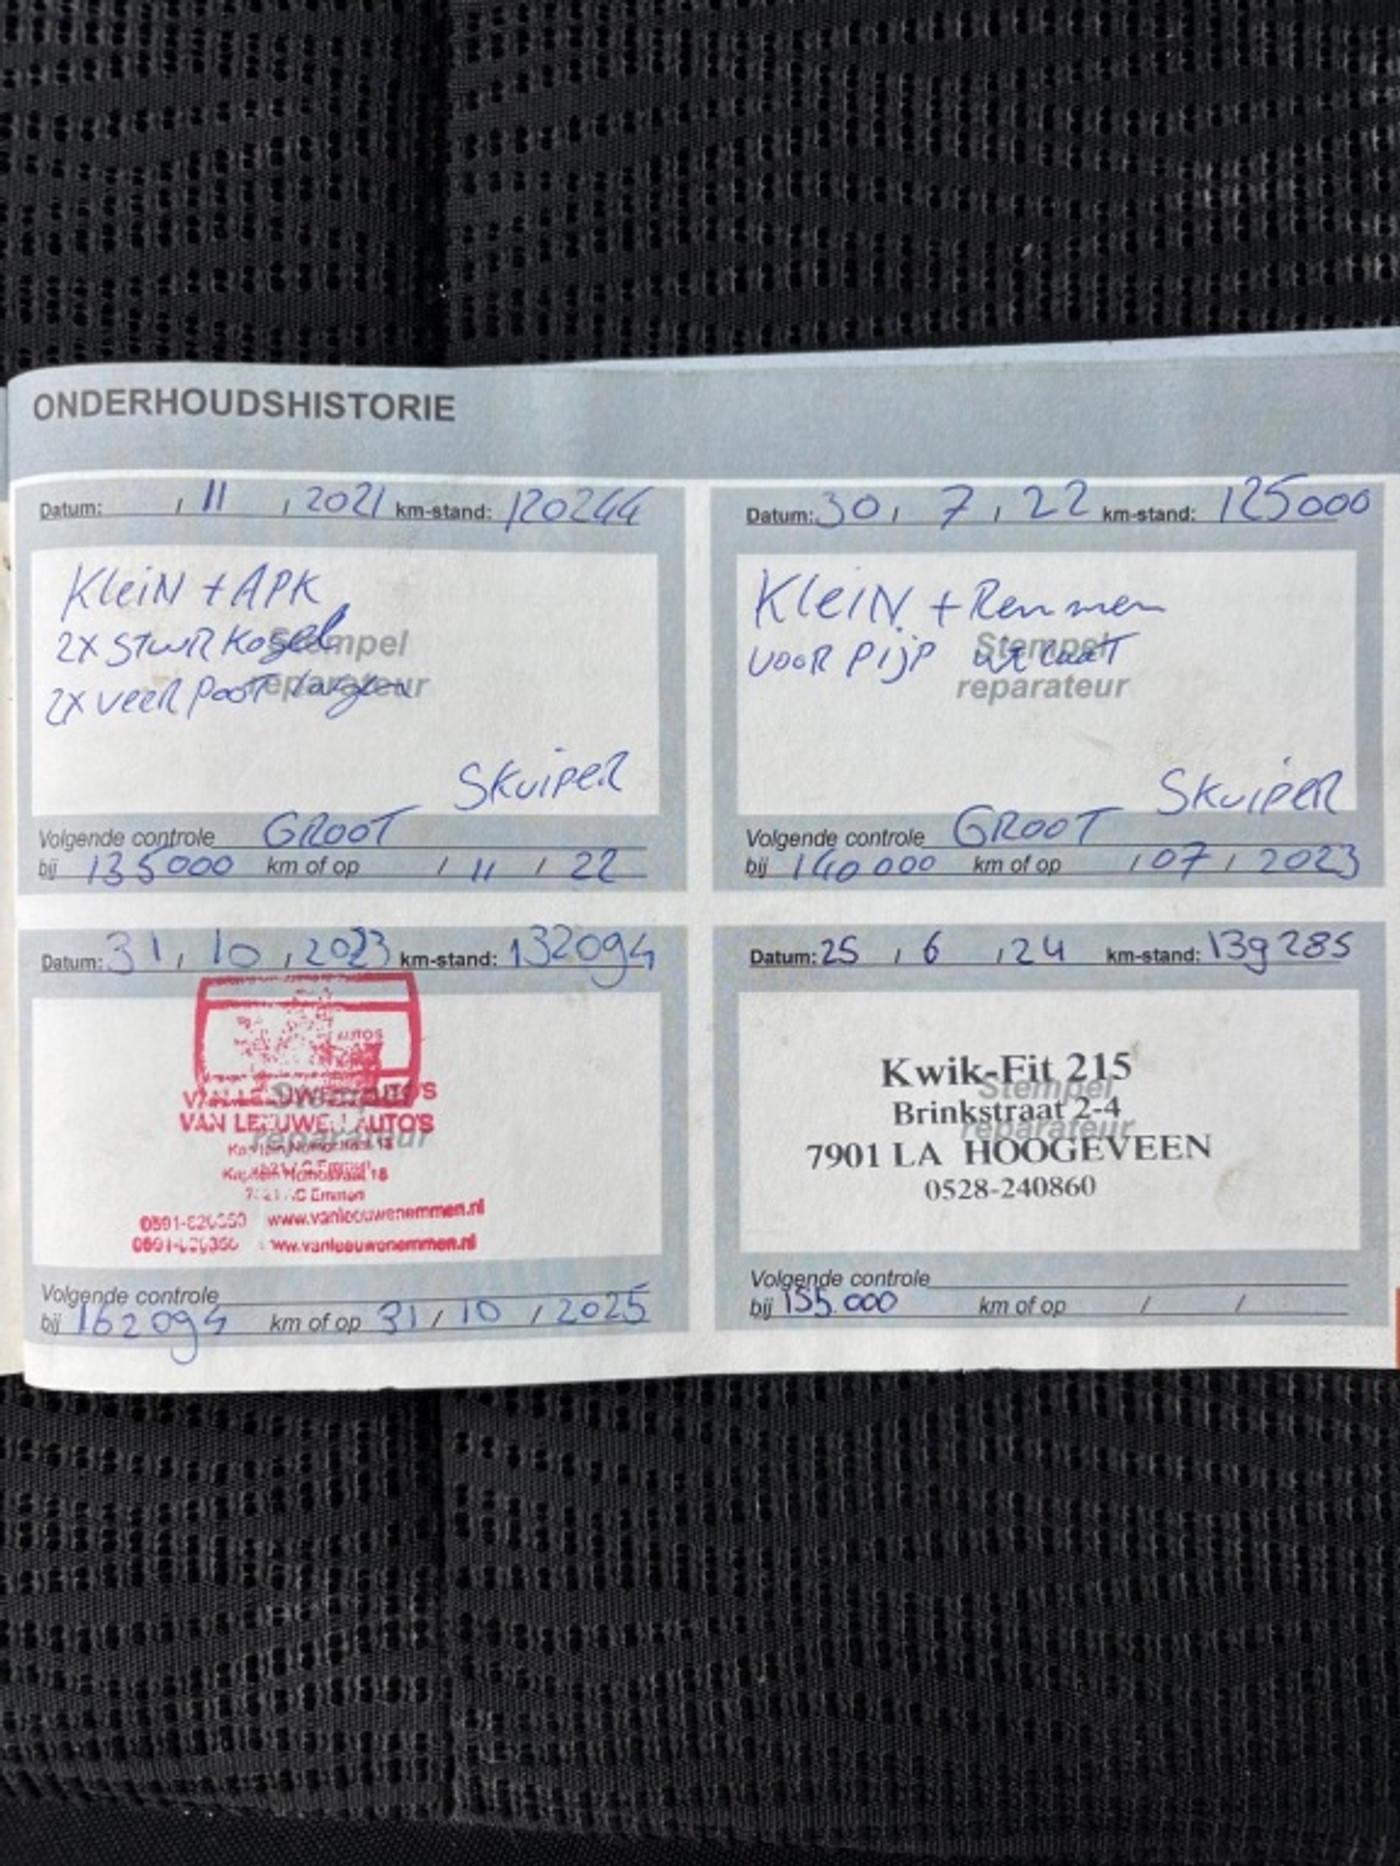 ONDERHOUDSHISTORIE
Datum: / 11 / 2021 km-stand: 120244
KleiN + APK
2x stuurkogel
2x veerpoot lagers
Stempel
reparateur
Skuiper
Volgende controle GROOT
bij 135000 km of op / 11 / 22
Datum: 30 / 7 / 22 km-stand: 125000
KleiN + Remmen
VOOR Pijp uitlaat
Stempel
reparateur
Skuiper
Volgende controle GROOT
bij 140000 km of op / 07 / 2023
Datum: 31 / 10 / 2023 km-stand: 132094
AUTOS
VAN LEEUWEN AUTO'S
VAN LEEUWEN AUTO'S
Stempel
reparateur
Emmen
www.vanleeuwenemmen.nl
www.vanleeuwenemmen.nl
Volgende controle
bij 162094 km of op 31 / 10 / 2025
Datum: 25 / 6 / 24 km-stand: 139285
Kwik-Fit 215
Stempel
Brinkstraat 2-4
reparateur
7901 LA HOOGEVEEN
0528-240860
Volgende controle
bij 155.000 km of op / /